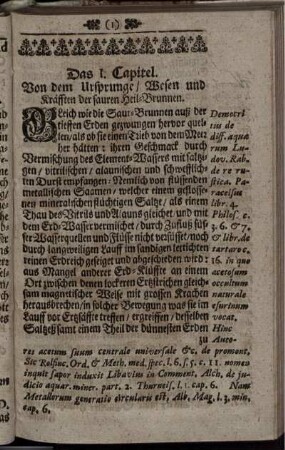 (1)
Das I. Capitel.
Von dem Ursprunge / Wesen und
Kräfften der sauren Heil-Brunnen.
Gleich wie die Saur-Brunnen auß der
tieffsten Erden gezwungen hervor quel-
len / als ob sie einen Trieb von dem Meer
her hätten: ihren Geschmack durch
Vermischung des Elements-Wassers mit saltzi-
gen / vitrilischen / alaunischen und schwefflich-
ten Durst empfangen: Nemlich von flüssenden
metallischen Saamen / welcher einem geflosse-
nen mineralischen flüchtigen Saltze / als einem
Thau des Vitrils und Alauns gleichet / und mit
dem Erd-Wasser vermischet / durch Zufluß süs-
ser Wasserquellen und Flüsse nicht versüsset / noch
durch langweiligen Lauff im sandigten lettichten
reinen Erdreich geseiget und abgeschieden wird:
aus Mangel anderer Erd-Klüffte an einem
Ort zwischen denen lockeren Ertzführichen gleich-
sam magnetischer Weise mit grossen Krachen
herausbrechen / in solcher Bewegung was sie im
Lauff vor Ertzsäffte treffen / ergreiffen / desselben
Saltzes samt einem Theil der dünnesten Erden
zu
Democri-
tus de
diff. aqua
rum Lu-
dov. Rab.
de re ru-
stica. Pa-
racelsus
libr. 4.
Philos. c.
3. 6. & 7.
& libr. de
tartaro c.
16. in que
acetosum
occultum
naturale
esurinum
vocat.
Hinc
Auto-
res acetum suum centrale universale &c. de promont,
Sic Rolfinc, Ord, & Meth. med. spec. l. 6, s, 5. c. 11. nomen
inquit sapor induxit Libavius in Comment. Alch, de ju-
dicio aquar. miner. part. 2. Thurneiß. l. 1. cap. 6. Nam
Metallorum generatio circularis est, Alb, Mag, l. 3, min,
cap, 6.